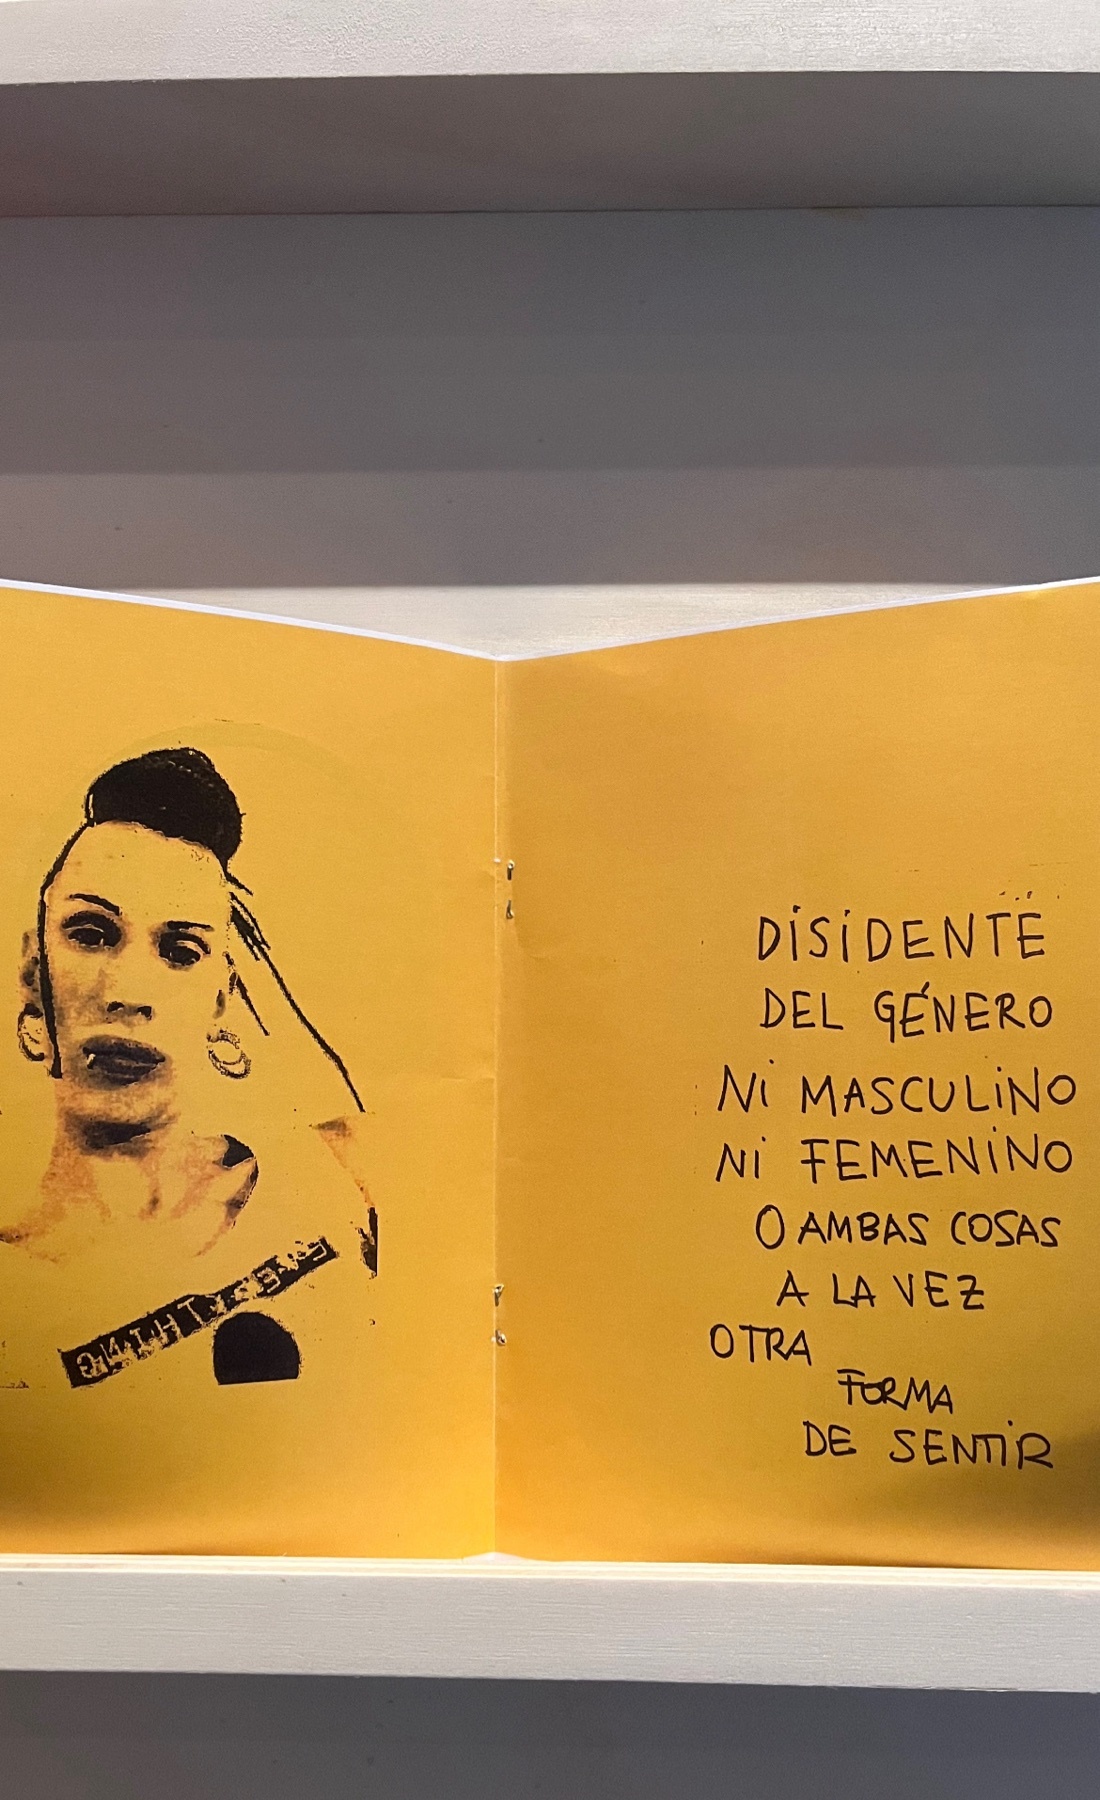 DISIDENTE
DEL GÉNERO
NI MASCULINO
NI FEMENINO
O AMBAS COSAS
A LA VEZ
OTRA
FORMA
DE SENTIR